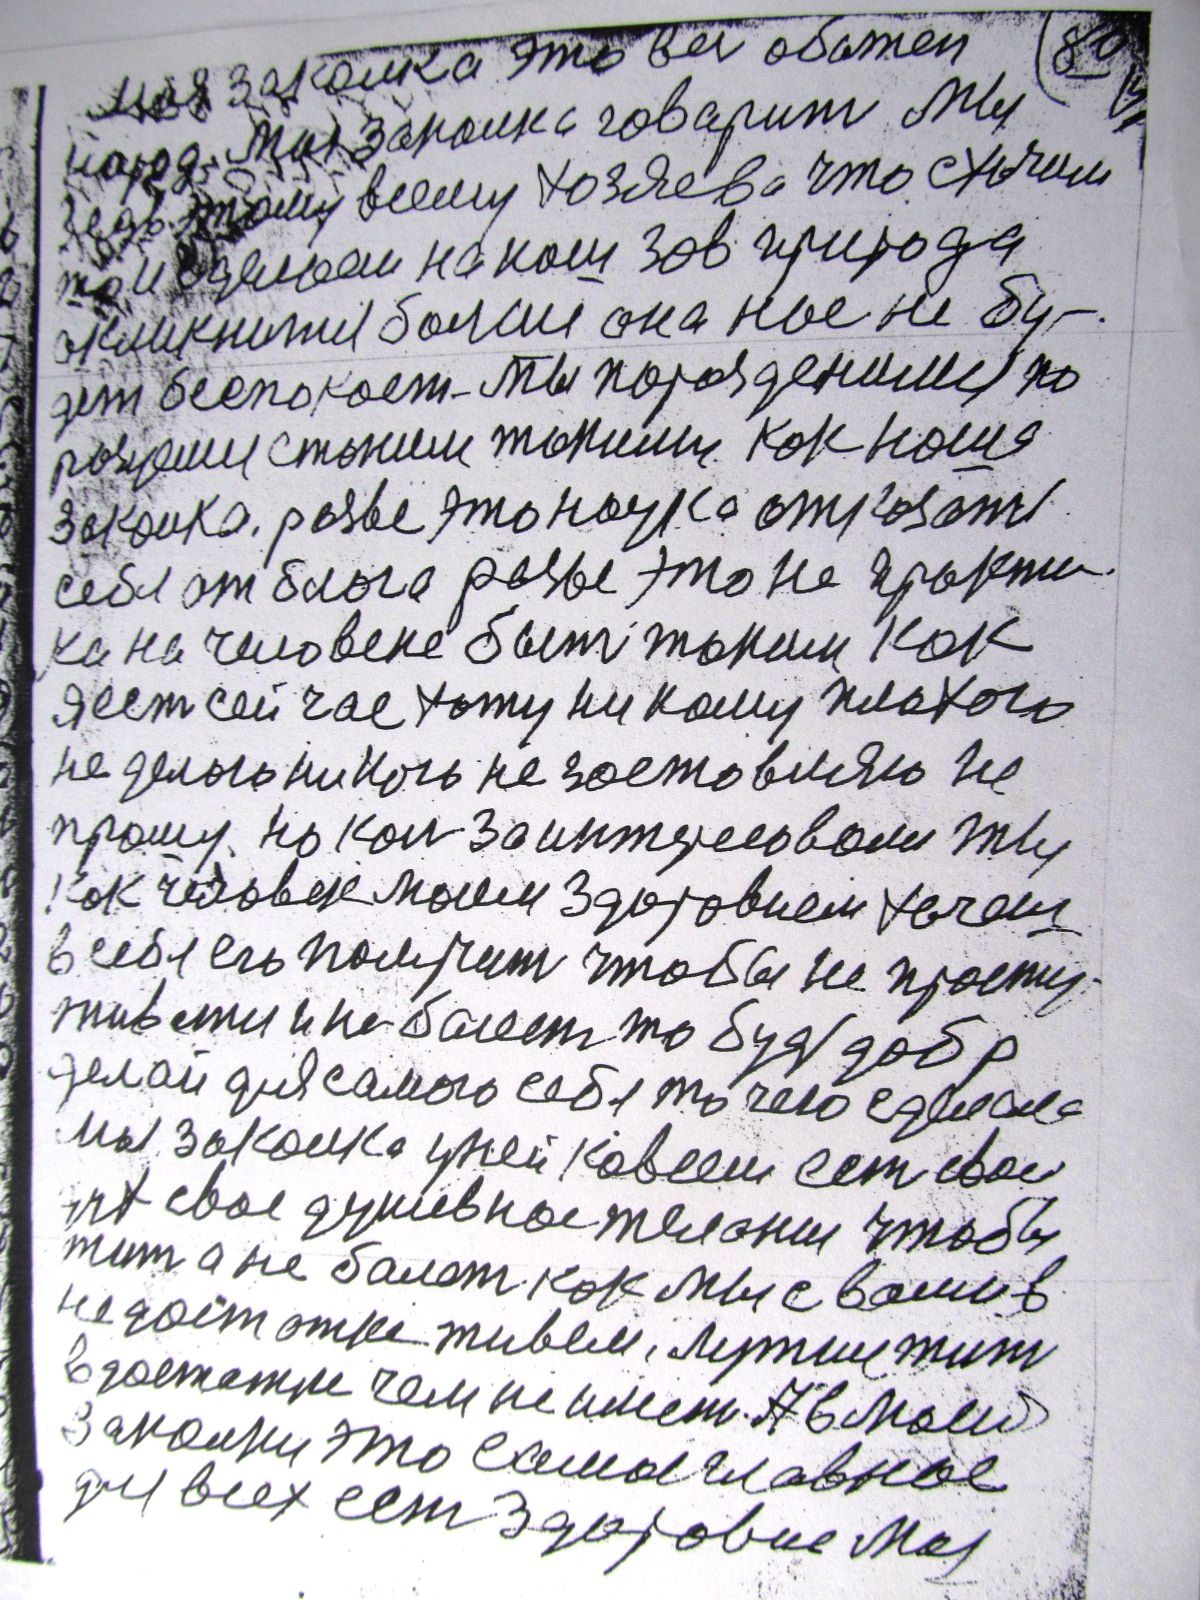 моя закалка это вси обажен
народ. Моя Закалка говарит Мы
ведь этому всему хозяева что схочим
то и сделаем на наш зов природа
акликнится болши она нас не бу-
дет беспокоет. Мы порожденими по
рождени станим такими как наша
Закалка. разве это наука отказатся
себя от блага разве это не практи-
ка на человеке быть таким как
я ест сейчас хожу никому плахого
не делаю никого не зоставляю не
прашу. но кали заинтересовали ты
как человек Моим Здаровием хочеш
в себя его получит чтобы не просту-
живатся и не балеть то будь добр
делай для самого себя то чего сделала
моя закалка у ней ко всем ест свое
свое душевное желание чтобы
жит а не балет. как Мы с вами в
недостатке живем, лутши жит
в достатке чем не имет. А в Моей
Закалки это самое главное
для всех ест Здаровие Моя